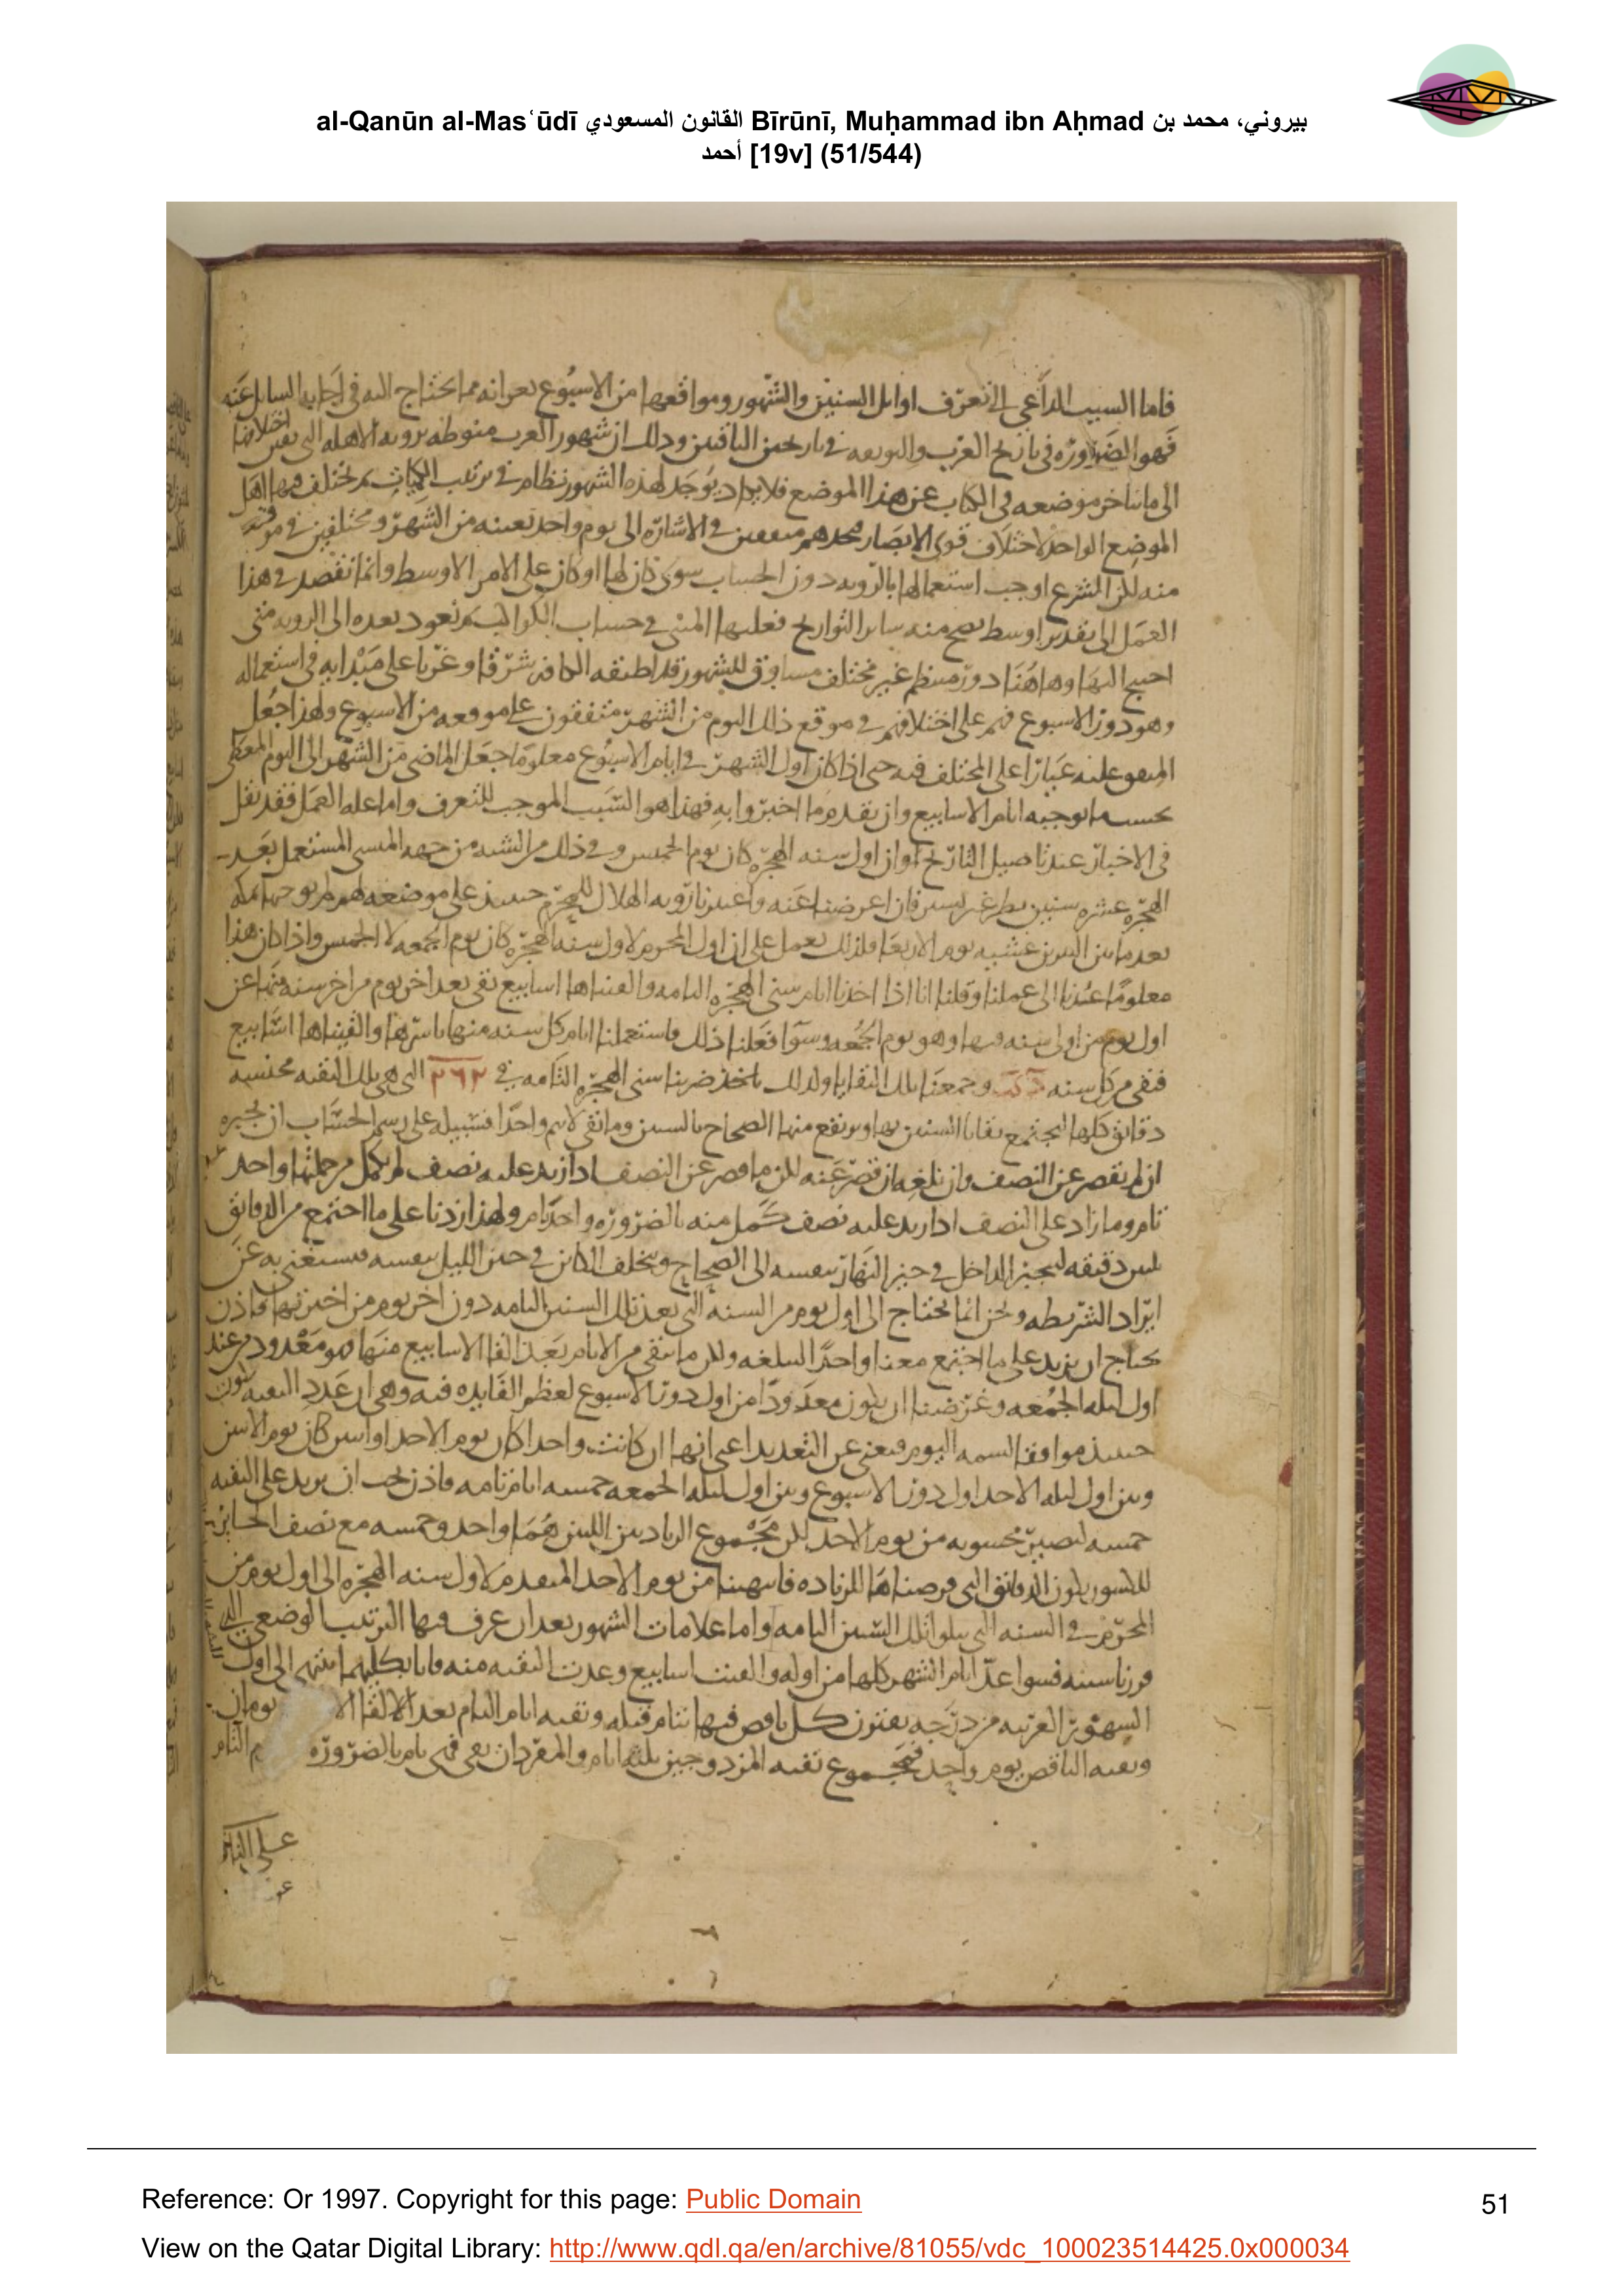 al-Qanūn al-Masʿūdī القانون المسعودي Bīrūnī, Muḥammad ibn Aḥmad بيروني، محمد بن
أحمد [19v] (51/544)
فاما السبب الداعي الى تعرف اوايل السنين والشهور ومواقعها من الاسبوع بعد انه مما يحتاج اليه في اجابه السايل عنه
فهو الضرورة في تاريخ العرب في تاريخين الباقيين وذلك ان شهور العرب منوطه برويه الاهله التي
الى ما يتاخر موضعه في الكتاب عن هذا الموضع فلا يوجد لهذه الشهور نظام في ترتيب الكبايس ثم يختلف فيها اهل
الموضع الواحد لاختلاف قوى الابصار متفقين في الاشاره الى يوم واحد بعينه من الشهر ومختلفين في
منه لكن الشرع اوجب استعمالها بالرويه دون الحساب سوى كان لها او كان على الامر الاوسط وانما نقصد في هذا
العمل الى تقدير اوسط يصح منه ساير التواريخ فعليها المبنى في حساب الكواكب ثم نعود بعده الى الرويه متى
احتيج اليها وهاهنا دور منتظم غير مختلف مساوق للشهور قد اطبقه الكافه شرقا وغربا على مبدايه في استعماله
وهو دور الاسبوع فهم على اختلافهم في موقع ذلك اليوم من الشهر متفقون على موقعه من الاسبوع ولهذا جعل
المتفق عليه عيارا على المختلف فيه حتى اذا كان اول الشهر في ايام الاسبوع معلوما جعل الماضي من الشهر الى اليوم المعطى
بحسب ما توجبه ايام الاسابيع وان تقدم ما اخبروا به فهذا هو السبب الموجب للتعرف واما عله العمل فقد نقل
في الاخبار عند تاصيل التاريخ ان اول سنه الهجرة كان يوم الخميس وفي ذلك من الشبه من جهه النسي المستعمل بعد
الهجرة عشره سنين فان اعرضنا عنه واعتبرنا رويه الهلال للمحرم حينيذ على موضعه
عشيه يوم الاربعا فلذلك نعمل على ان اول المحرم لاول سنه الهجرة كان يوم الجمعه لا الخميس واذا كان هذا
معلوما عدنا الى عملنا وقلنا انا اذا اخذنا ايام سني الهجرة التامه والقيناها اسابيع بقي بعد اخر يوم من اخر سنه منها عن
اول يوم من اول سنه فيها وهو يوم الجمعه وسوا فعلنا ذلك واستعملنا ايام كل سنه منها باسرها والقيناها اسابيع
فبقي من كل سنه وجمعنا تلك البقايا ولذلك ضربنا سني الهجرة التامه في ٢٦٢ التي هي تلك البقيه مجنسه
دقايق كلها ليجتمع بقايا السنين بها ويرتفع منها الصحاح بالستين وما بقي لا يتم واحدا فسبيله على رسم الحساب ان يجبره
ان لم يقصر عن النصف وان نلغيه ان قصر عنه لان ما قصر عن النصف اذا زيد عليه نصف لم يكمل من جملتها واحد
تام وما زاد على النصف اذا زيد عليه نصف كمل منه بالضروره واحد تام ولهذا زدنا على ما اجتمع من الدقايق
ثلثين دقيقه ليجبر الداخل في حيز النهار بنفسه الى الصحاح ويتخلف الكاين في حيز الليل بنفسه فيستغنى به عن
ايراد الشريطه ونحن انما نحتاج الى اول يوم من السنه التي بعد تلك السنين التامه دون اخر يوم من اخيرتها فاذن
نحتاج ان نزيد على ما اجتمع معنا واحدا لنبلغه ولان ما يبقى من الايام بعد القا الاسابيع منها هو معدود من عند
اول ليله الجمعه وغرضنا ان يكون معدودا من اول دور الاسبوع لعظم الفايده فيه وهي ان عدد البقيه يكون
حينيذ موافقا لسمه اليوم فيغني عن التعديد اعني انها ان كانت واحدا كان يوم الاحد او اثنين كان يوم الاثنين
وبين اول ليله الاحد اول دور الاسبوع وبين اول ليله الجمعه خمسه ايام تامه فاذن يجب ان نزيد على البقيه
خمسه لتصير محسوبه من يوم الاحد لكن مجموع الزيادتين اللتين هما واحد وخمسه مع نصف الجابر
للكسور يكون الدقايق التي فرضناها للزياده فانتهينا من يوم الاحد المتقدم لاول سنه الهجرة الى اول يوم من
المحرم في السنه التي يتلوا تلك السنين التامه واما علامات الشهور بعد ان عرف فيها الترتيب الوضعي
فسوا عد ايام الشهر كلها من اوله والقيت اسابيع وعدت البقيه منه الى اول
الشهور العربيه مزدوجه يقترن كل ناقص فيها بتام قبله وبقيه ايام التام بعد الالقا يومان
وبقيه الناقص يوم واحد فمجموع بقيه المزدوجين ثلثه ايام بالضروره التام
Reference: Or 1997. Copyright for this page: Public Domain
51
View on the Qatar Digital Library: http://www.qdl.qa/en/archive/81055/vdc_100023514425.0x000034